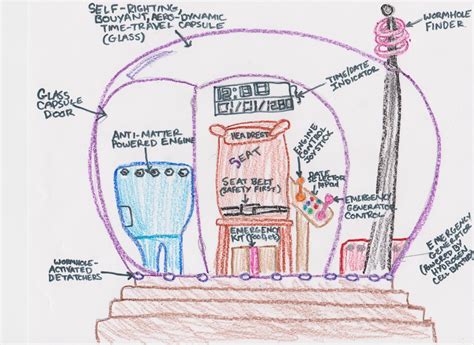 SELF-RIGHTING,
BOUYANT, AERO-DYNAMIC
TIME-TRAVEL CAPSULE
(GLASS)
WORMHOLE
FINDER
GLASS
CAPSULE
DOOR
TIME/DATE
INDICATOR
ANTI-MATTER
POWERED ENGINE
HEADREST
SEAT
ENGINE
CONTROL
JOYSTICK
SEAT BELT
(SAFETY FIRST)
DATE
SELECTOR
EMERGENCY
GENERATOR
CONTROL
EMERGENCY
KIT
WORMHOLE-
ACTIVATED
DETATCHERS
EMERGENCY
GENERATOR
(POWERED BY
HYDROGEN
CELL